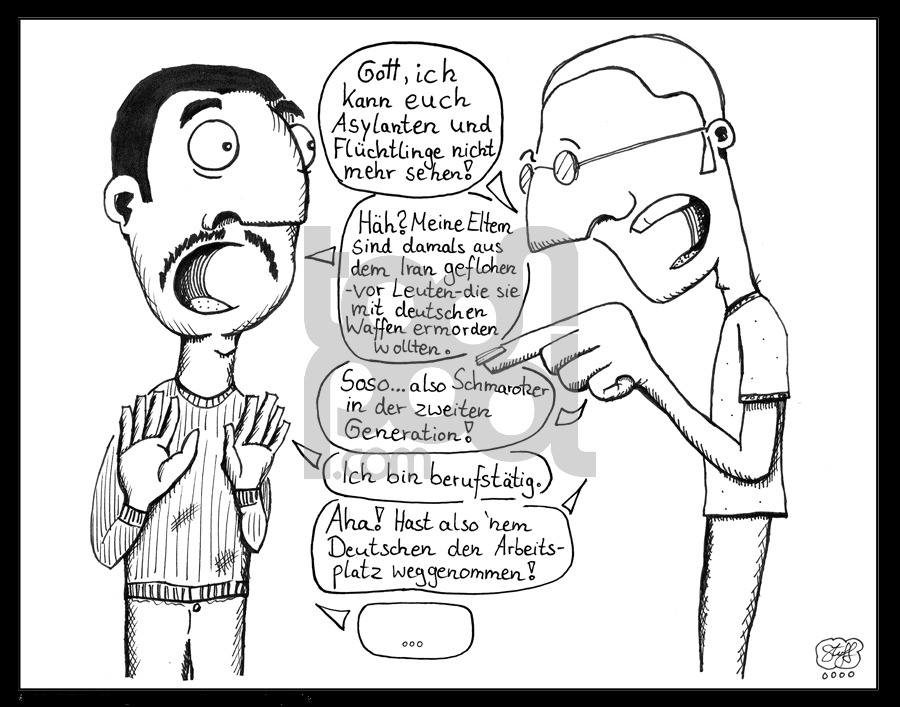 Gott, ich
kann euch
Asylanten und
Flüchtlinge nicht
mehr sehen!
Häh? Meine Eltern
sind damals aus
dem Iran geflohen
-vor Leuten-die sie
mit deutschen
Waffen ermorden
wollten.
Soso... also Schmarotzer
in der zweiten
Generation!
Ich bin berufstätig.
Aha! Hast also 'nem
Deutschen den Arbeits-
platz weggenommen!
...
toonpool
.com